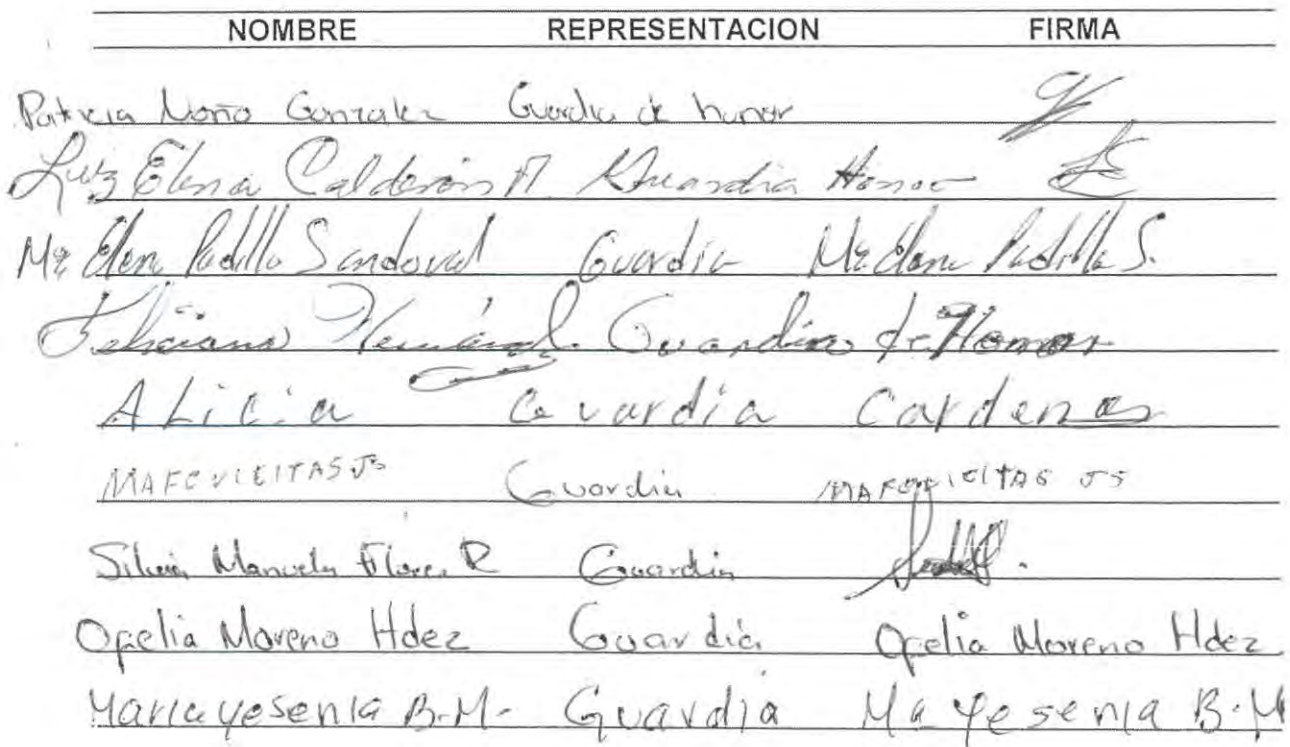 NOMBRE REPRESENTACION FIRMA
Patricia González Guardia de honor
Luz Elena Calderón M Guardia Honor
Ma Elena Padilla Sandoval Guardia Ma Elena Padilla S.
Feliciana Hernández Guardia de Honor
ALicia Guardia Cardenas
Guardia
Silvia Manuela Flores R Guardia
Ofelia Moreno Hdez Guardia Ofelia Moreno Hdez
Maria yesenia B.M. Guardia Ma Yesenia B.M